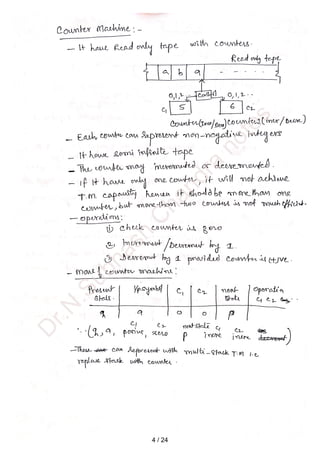 Counter Machine:-
- It have Read only tape with counters.
Read only tape
a b a - - - -
0,1,2 Control 0,1,2..
C1 5 6 C2
Counter(Incr/Decr) Counter2(Incr/Decr)
- Each counter can Represent non-negative integers
- It have semi infinite tape
- The counter may incremented or decremented.
- if it have only one counter, it will not achieve
T.M capacity hence it should be more than one
counter, but more than two counters is not much efficient.
- operations:
① check counter is zero
② Increment/Decrement by 1
③ Decrement by 1 provided counter is +ive.
- move of counter machine:
Present State I/p symbol C1 C2 next State Operation C1 C2
q a 0 0 p
C1 C2 next state C1 C2
(q, a, positive, zero p incre incre)
- These can represent with multi-stack T.M i.e
replace stack with counter.
Dr.N.
4 / 24